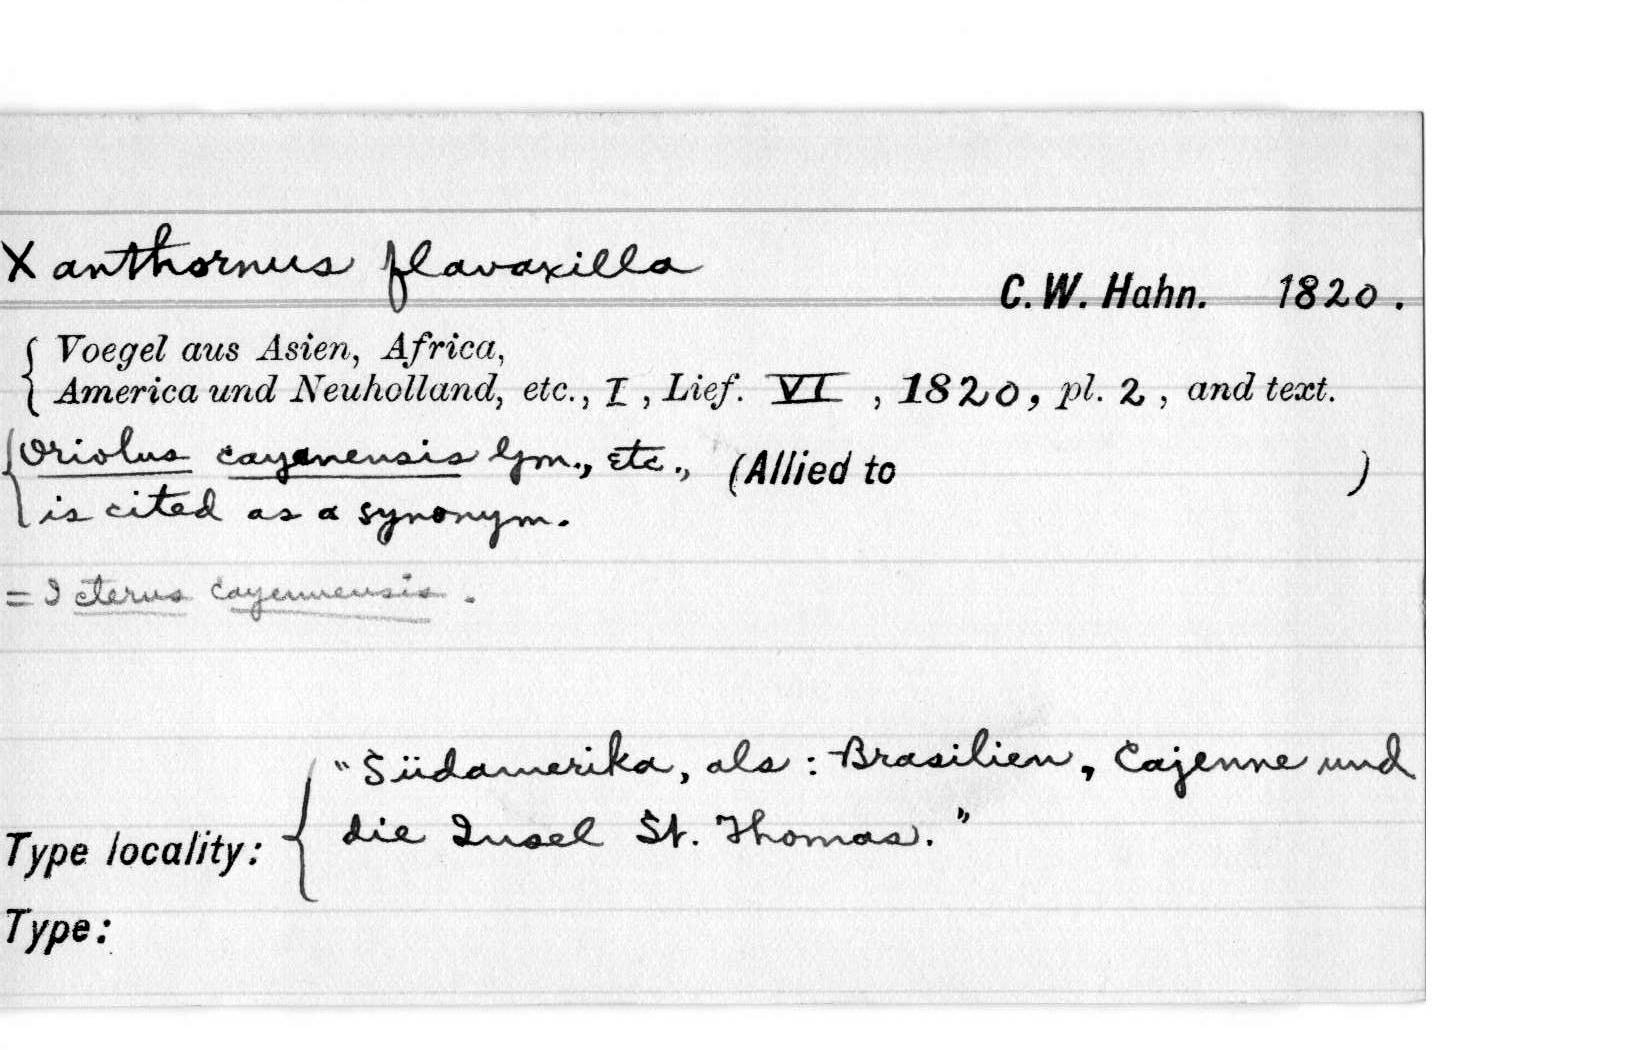 Xanthornus flavaxilla
C. W. Hahn. 1820.
Voegel aus Asien, Africa,
America und Neuholland, etc., I, Lief. VI, 1820, pl. 2, and text.
Oriolus cayanensis Gm., etc., (Allied to )
is cited as a synonym.
= Icterus cayennensis.
"Südamerika, als: Brasilien, Cajenne und
die Insel St. Thomas."
Type locality:
Type: